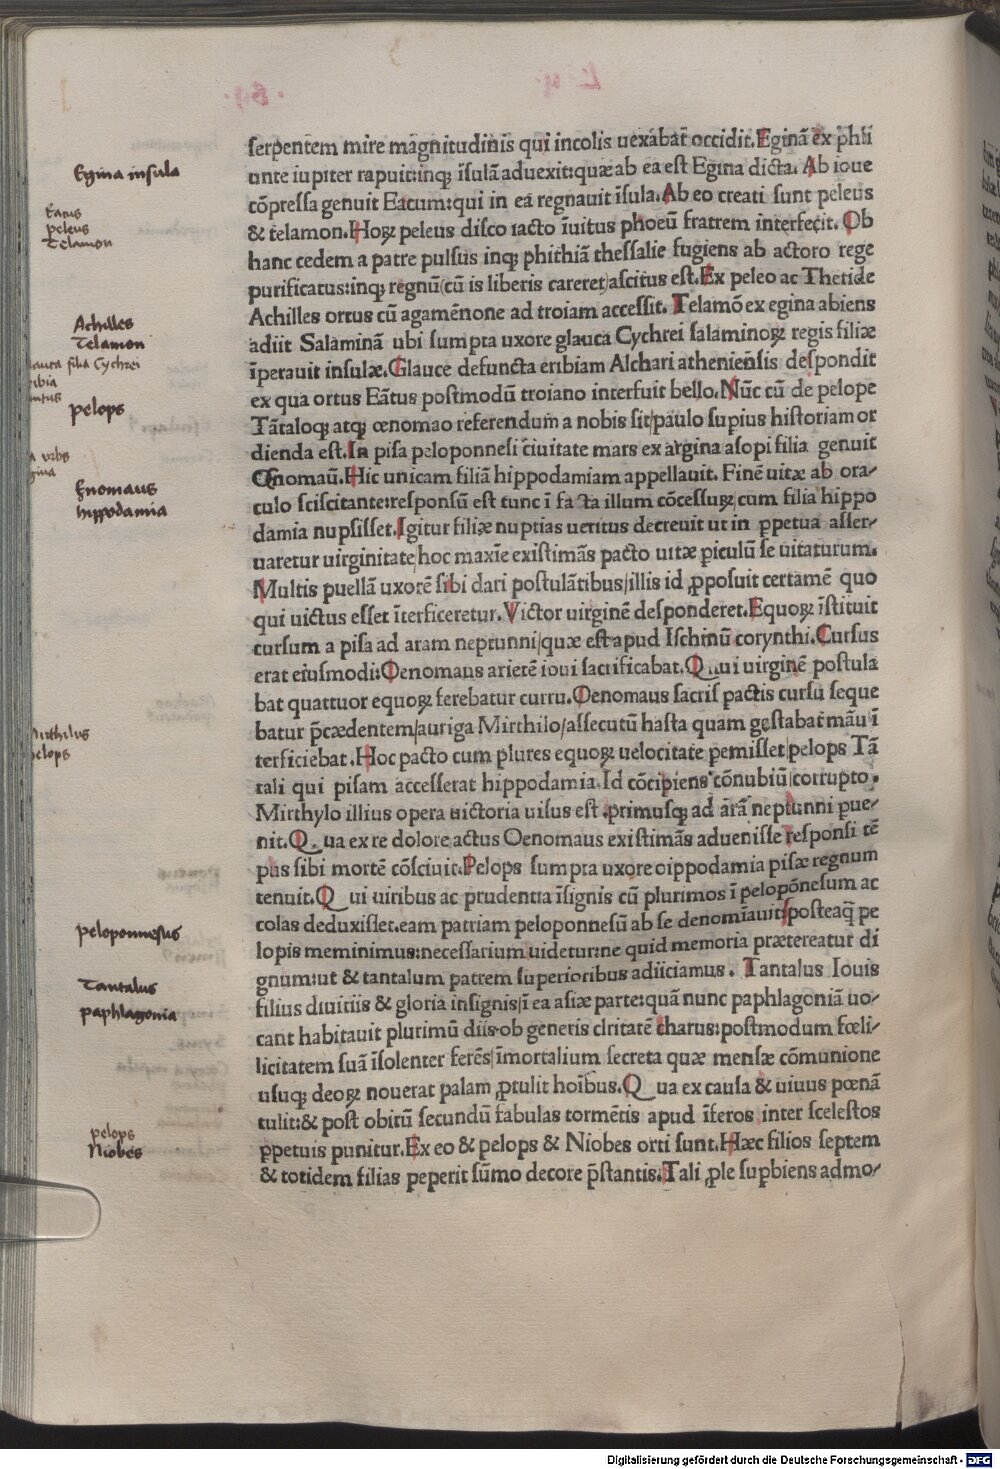 Egina insula
Eacus
peleus
Telamon
Achilles
Telamon
filia Cychrei
pelops
vrbs
Enomaus
hippodamia
pelops
peloponnesus
Tantalus
paphlagonia
pelops
Niobes
serpentem mire magnitudinis qui incolis uexabat̃ occidit. Eginã ex phli
unte iupiter rapuit: inqꝫ ĩsulã aduexit: quæ ab ea est Egina dicta. Ab ioue
cõpressa genuit Eacum: qui in ea regnauit ĩsula. Ab eo creati sunt peleus
& telamon. Hoꝝ peleus disco iacto ĩuitus phoeũ fratrem interfecit. Ob
hanc cedem a patre pulsus inqꝫ phithiã thessalie fugiens ab actoro rege
purificatus: inqꝫ regnũ (cũ is liberis careret) ascitus est. Ex peleo ac Thetide
Achilles ortus cũ agamẽnone ad troiam accessit. Telamõ ex egina abiens
adiit Salaminã ubi sumpta uxore glauca Cychrei salaminoꝝ regis filiæ
ĩperauit insulæ. Glauce defuncta eribiam Alchari atheniẽsis despondit
ex qua ortus Eãtus postmodũ troiano interfuit bello. Nũc cũ de pelope
Tãtaloqꝫ atqꝫ œnomao referendum a nobis sit/paulo supius historiam or
dienda est. In pisa peloponnesi ciuitate mars ex argina asopi filia genuit
Œnomaũ. Hic unicam filiã hippodamiam appellauit. Finẽ uitæ ab ora-
culo sciscitante: responsũ est tunc ĩ facta illum cõcessuꝝ cum filia hippo
damia nupsisset. Igitur filiæ nuptias ueritus decreuit ut in ꝑpetua asser-
uaretur uirginitate/hoc maxĩe existimãs pacto uitæ piculũ se uitaturum.
Multis puellã uxorẽ sibi dari postulãtibus/illis id ꝓposuit certamẽ quo
qui uictus esset ĩterficeretur. Victor uirginẽ desponderet. Equoꝝ ĩstituit
cursum a pisa ad aram neptunni/quæ est apud Ischmũ corynthi. Cursus
erat eiusmodi: Oenomaus arietẽ ioui sacrificabat. Qui uirginẽ postula
bat quattuor equoꝝ ferebatur curru. Oenomaus sacris pactis cursu seque
batur p̃cædentem/auriga Mirthilo/assecutũ hasta quam gestabat mãu ĩ
terficiebat. Hoc pacto cum plures equoꝝ uelocitate ꝑemisset/pelops Tã
tali qui pisam accesserat hippodamia. Id cõcipiens cõnubiũ/corrupto.
Mirthylo illius opera uictoria uisus est. primusqꝫ ad ãrã neptunni pue-
nit. Qua ex re dolore actus Oenomaus existimãs aduenisse responsi tẽ
pus sibi mortẽ cõsciuit. Pelops sumpta uxore oippodamia pisæ regnum
tenuit. Qui uiribus ac prudentia ĩsignis cũ plurimos ĩ pelopõnesum ac
colas deduxisset. eam patriam peloponnesũ ab se denomĩauit/posteaq̃ pe
lopis meminimus: necessarium uidetur: ne quid memoria prætereatur di
gnum: ut & tantalum patrem superioribus adiiciamus. Tantalus Iouis
filius diuitiis & gloria insignis/ĩ ea asiæ parte: quã nunc paphlagoniã uo-
cant habitauit plurimũ diis ob generis clritatẽ charus: postmodum fœli-
licitatem suã ĩsolenter ferẽs/ĩmortalium secreta quæ mensæ cõmunione
usuqꝫ deoꝝ nouerat palam ꝓtulit hoĩbus. Qua ex causa & uiuus pœnã
tulit: & post obitũ secundũ fabulas tormẽtis apud ĩferos inter scelestos
ꝑpetuis punitur. Ex eo & pelops & Niobes orti sunt. Hæc filios septem
& totidem filias peperit sũmo decore p̃stantis. Tali ꝓle supbiens admo-
Digitalisierung gefördert durch die Deutsche Forschungsgemeinschaft - DFG